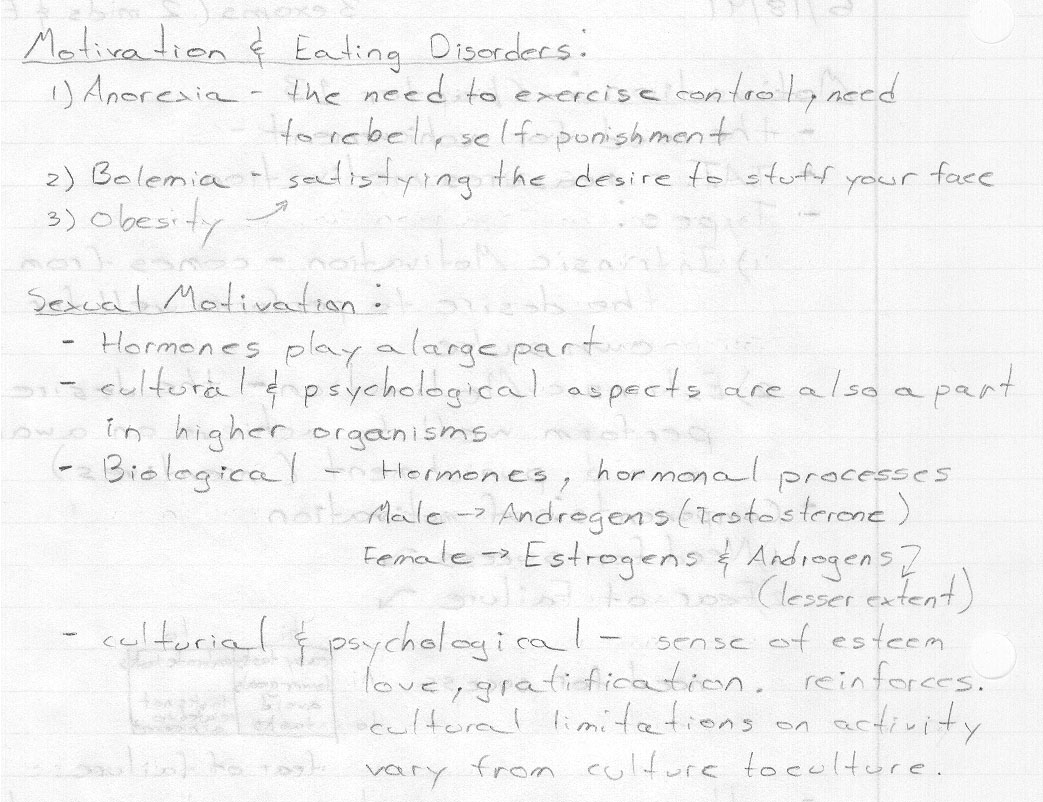 Motivation & Eating Disorders:
1) Anorexia - the need to exercise control, need
to rebel, self punishment
2) Bolemia - satisfying the desire to stuff your face
3) Obesity ↗
Sexual Motivation:
- Hormones play a large part
- cultural & psychological aspects are also a part
in higher organisms
- Biological - Hormones, hormonal processes
Male → Androgens (Testosterone)
Female → Estrogens & Androgens
(lesser extent)
- culturial & psychological - sense of esteem
love, gratification. reinforces.
cultural limitations on activity
vary from culture to culture.